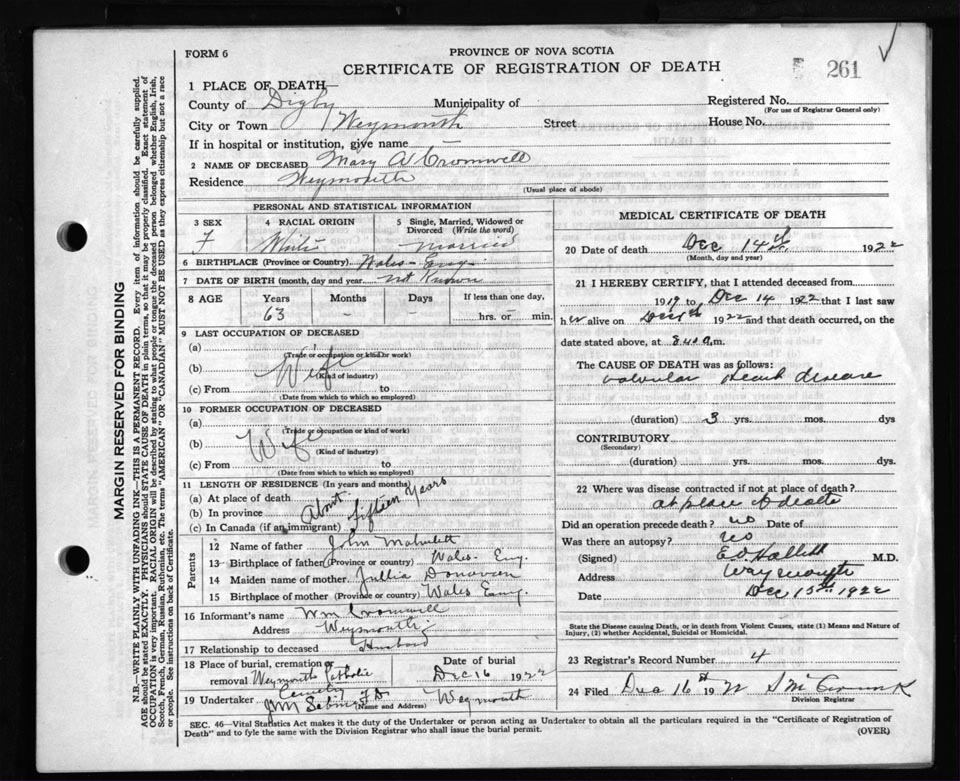 FORM 6
PROVINCE OF NOVA SCOTIA
CERTIFICATE OF REGISTRATION OF DEATH
261
1 PLACE OF DEATH—
County of Digby Municipality of
Registered No.
(For use of Registrar General only)
City or Town Weymouth Street House No.
If in hospital or institution, give name
2 NAME OF DECEASED Mary A Cromwell
Residence Weymouth
(Usual place of abode)
PERSONAL AND STATISTICAL INFORMATION
3 SEX
F
4 RACIAL ORIGIN
White
5 Single, Married, Widowed or Divorced (Write the word)
Married
6 BIRTHPLACE (Province or Country) Wales - Eng.
7 DATE OF BIRTH (month, day and year) not Known
8 AGE
Years Months Days If less than one day,
63 - - hrs. or min.
9 LAST OCCUPATION OF DECEASED
(a)
(Trade or occupation or kind or work)
(b) Wife
(Kind of industry)
(c) From to
(Date from which to which so employed)
10 FORMER OCCUPATION OF DECEASED
(a)
(Trade or occupation or kind of work)
(b) Wife
(Kind of industry)
(c) From to
(Date from which to which so employed)
11 LENGTH OF RESIDENCE (In years and months)
(a) At place of death
(b) In province About fifteen years
(c) In Canada (if an immigrant)
Parents
12 Name of father John
13 Birthplace of father (Province or country) Wales - Eng.
14 Maiden name of mother Jullia Donovan
15 Birthplace of mother (Province or country) Wales Eng.
16 Informant's name Wm Cromwell
Address Weymouth
17 Relationship to deceased Husband
18 Place of burial, cremation or removal Weymouth Catholic Cemetery
Date of burial
Dec 16 1922
19 Undertaker
(Name and Address) Weymouth
MEDICAL CERTIFICATE OF DEATH
20 Date of death Dec 14th 1922
(Month, day and year)
21 I HEREBY CERTIFY, that I attended deceased from
1919 to Dec 14 1922 that I last saw
her alive on 1922 and that death occurred, on
date stated above, at a.m.
The CAUSE OF DEATH was as follows:
valvular heart disease
(duration) 3 yrs. mos. dys
CONTRIBUTORY
(Secondary)
(duration) yrs. mos. dys.
22 Where was disease contracted if not at place of death?
at place of death
Did an operation precede death? no Date of
Was there an autopsy? no
(Signed) E.O. Hallett M.D.
Address Waymouth
Date Dec 15th 1922
State the Disease causing Death, or in death from Violent Causes, state (1) Means and Nature of Injury, (2) whether Accidental, Suicidal or Homicidal.
23 Registrar's Record Number 4
24 Filed Dec 16th 1922
Division Registrar
SEC. 46—Vital Statistics Act makes it the duty of the Undertaker or person acting as Undertaker to obtain all the particulars required in the "Certificate of Registration of
Death" and to fyle the same with the Division Registrar who shall issue the burial permit.
(OVER)
MARGIN RESERVED FOR BINDING
N.B.—WRITE PLAINLY WITH UNFADING INK—THIS IS A PERMANENT RECORD. Every item of information should be carefully supplied.
AGE should be stated EXACTLY. PHYSICIANS should STATE CAUSE OF DEATH in plain terms, so that it may be properly classified. Exact statement of
OCCUPATION is very important. RACIAL ORIGIN will be described by stating to what people or tongue the deceased person belonged whether English, Irish,
Scotch, French, German, Russian, Ruthenian, etc. The terms "AMERICAN" OR "CANADIAN" MUST NOT BE USED as they express citizenship but not a race
or people. See instructions on back of Certificate.